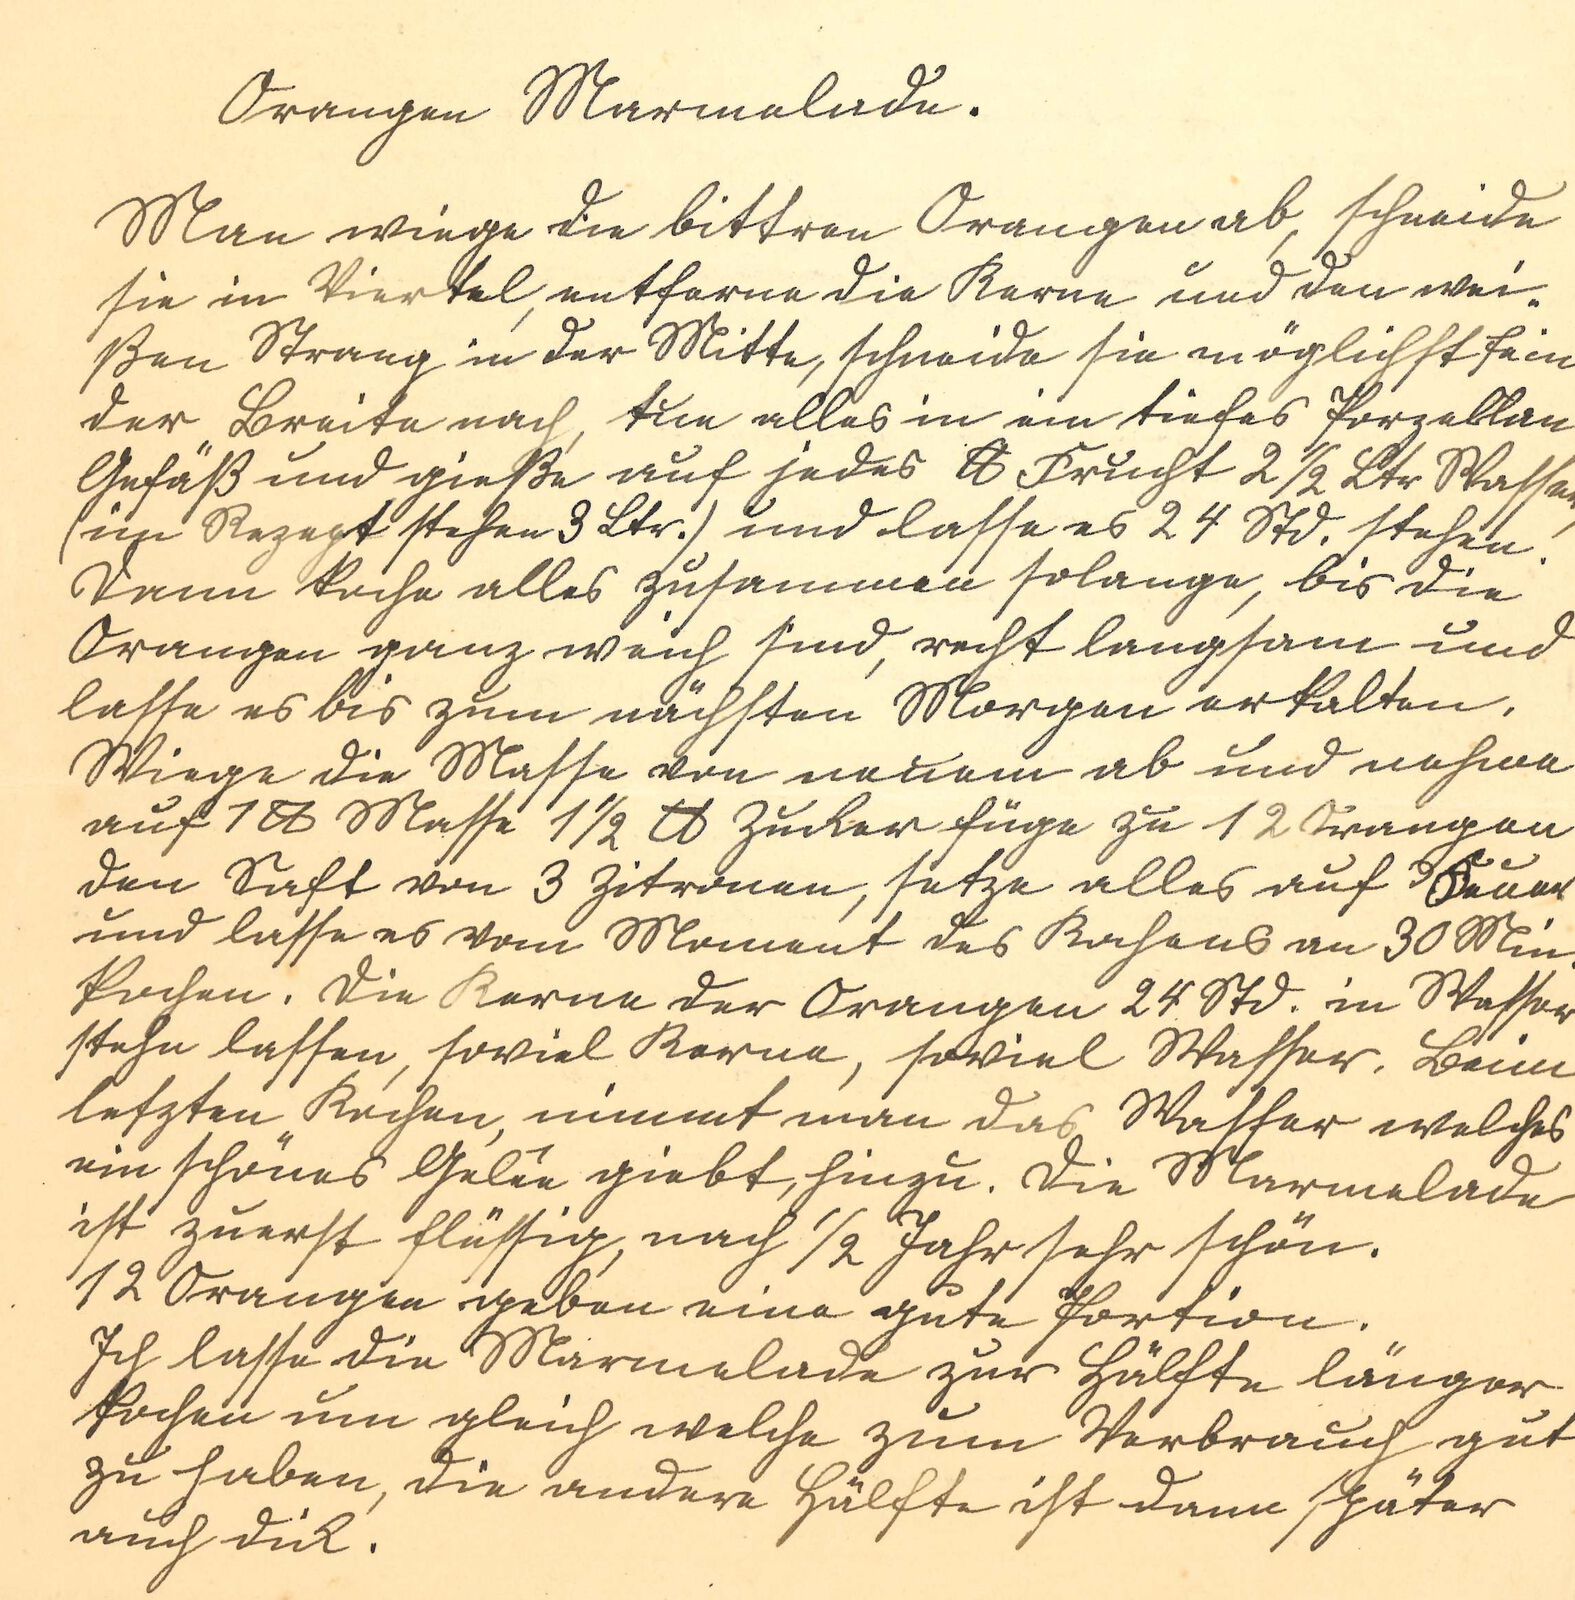 Orangen Marmelade.
Man wiege die bittren Orangen ab, schneide
sie in Viertel, entferne die Kerne und den wei-
ßen Strang in der Mitte, schneide sie möglichst fein
der Breite nach, tue alles in ein tiefes Porzellan
Gefäß und gieße auf jedes ℔ Frucht 2 1/2 Ltr Wasser,
(im Rezept stehen 3 Ltr.) und lasse es 24 Std. stehen.
Dann koche alles zusammen solange, bis die
Orangen ganz weich sind, recht langsam und
lasse es bis zum nächsten Morgen erkalten.
Wiege die Masse von neuem ab und nehme
auf 1 ℔ Masse 1 1/2 ℔ Zucker füge zu 12 Orangen
den Saft von 3 Zitronen, setze alles auf's Feuer
und lasse es vom Moment des Kochens an 30 Min.
kochen. Die Kerne der Orangen 24 Std. in Wasser
stehn lassen, soviel Kerne, soviel Wasser. Beim
letzten Kochen, nimmt man das Wasser welches
ein schönes Gelée giebt, hinzu. Die Marmelade
ist zuerst flüssig, nach 1/2 Jahr sehr schön.
12 Orangen geben eine gute Portion.
Ich lasse die Marmelade zur Hälfte länger
kochen um gleich welche zum Verbrauch gut
zu haben, die andere Hälfte ist dann später
auch dick.